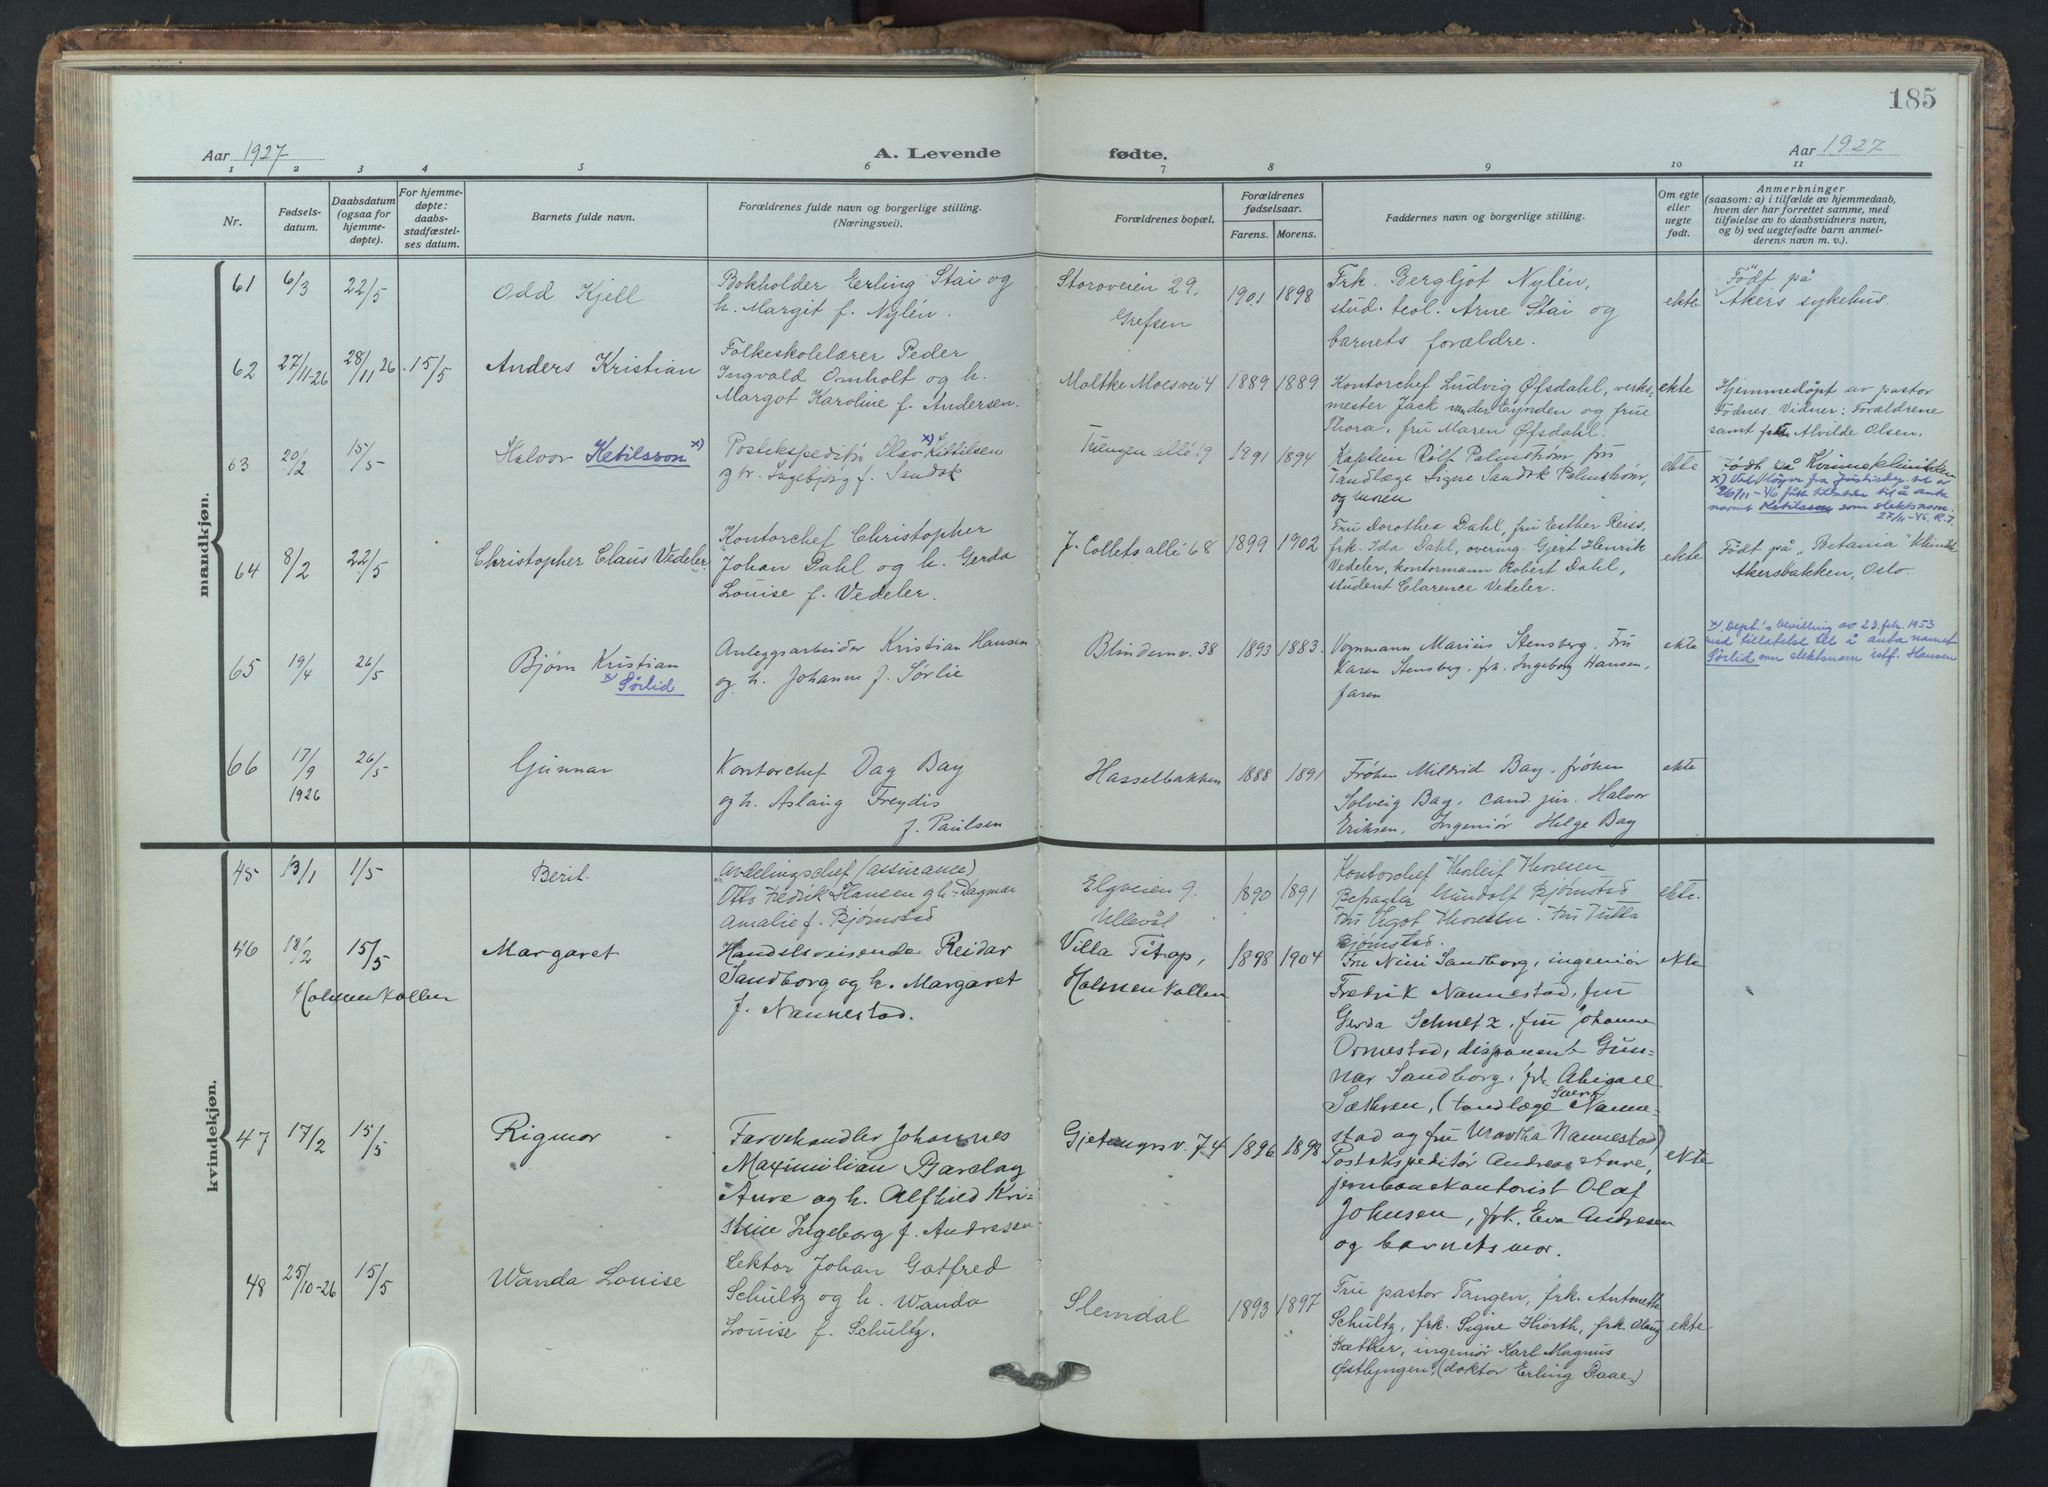 185
Aar 1927 A. Levende fødte. Aar 1927
1 2 3 4 5 6 7 8 9 10 11
Nr.
Fødsels-
datum.
Daabsdatum
(ogsaa for
hjemme-
døpte).
For hjemme-
døpte:
daabs-
stadfæstel-
ses datum.
Barnets fulde navn.
Forældrenes fulde navn og borgerlige stilling.
(Næringsvei).
Forældrenes bopæl.
Forældrenes
fødselsaar.
Farens. Morens.
Faddernes navn og borgerlige stilling.
Om egte
eller
uegte
født.
Anmerkninger
(saasom: a) i tilfælde av hjemmedaab,
hvem der har forrettet samme, med
tilføielse av to daabsvidners navn,
og b) ved uegtefødte barn anmel-
derens navn m. v.).
mandkjøn.
61 6/3 22/5
Odd Kjell
Bokholder Erling Stai og
h. Margit f. Nylén.
Storoveien 29,
Grefsen
1901 1898
Frk. Bergljot Nylén,
stud. teol. Arne Stai og
barnets forældre.
ekte
Födt på
Akers sykehus.
62 27/11-26 28/11 26 15/5
Anders Kristian
Folkeskolelærer Peder
Ingvald Omholt og h.
Margot Karoline f. Andersen.
Moltke Moesvei 4
1889 1889
Kontorchef Ludvig Øfsdahl, verks-
mester Jack van der Eynden og frue
Thora, fru Maren Øfsdahl.
ekte
Hjemmedøpt av pastor
Fodnes. Vidner: Forældrene
samt frk Alvilde Olsen.
63 20/2 15/5
Halvor Ketilsson x)
Postekspeditør Olav x) Kittilsen
og h. Ingebjørg f. Sandok
Tuengen allé 19
1891 1894
Kaptein Rolf Palmstrøm, fru
Tandlæge Signe Sandok Palmstrøm,
og moren
ekte
Født på Kvinneklinikken
x) Ved fra Justisdep. av
26/11-46 fått tillatelse til å anta
navnet Ketilsson som slektsnavn.
27/11-46. R. J.
64 8/2 22/5
Christopher Claus Vedeler.
Kontorchef Christopher
Johan Dahl og h. Gerda
Louise f. Vedeler.
J. Collets allé 68
1899 1902
Fru Dorothea Dahl, fru Esther Reiss,
frk. Ida Dahl, overing. Gjert Henrik
Vedeler, kontormann Robert Dahl,
student Clarence Vedeler.
ekte
Födt på "Betania" klinik
Akersbakken, Oslo.
65 19/4 26/5
Bjørn Kristian
x) Sørlid
Anleggsarbeider Kristian Hansen
og h. Johanne f. Sørlie
Blindernv. 38
1893 1883.
Vognmann Marius Stensberg. Fru
Karen Stensberg, frk. Ingeborg Hansen,
faren
ekte
x) Dept.'s bevilling av 23. feb. 1953
med tillatelse til å anta navnet
Sørlid som slektsnavn istf. Hansen
66 17/9 1926 26/5
Gunnar
Kontorchef Dag Bay
og h. Aslaug Freydis
f. Paulsen
Hasselbakken
1888 1891
Frøken Mildrid Bay, frøken
Solveig Bay, cand. jur. Halvor
Eriksen, Ingeniør Helge Bay
ekte
kvindekjøn.
45 13/1 1/5
Berit.
Avdelingschef (assurance)
Otto Fredrik Hansen og h. Dagmar
Amalie f. Bjørnstad
Elgveien 9.
Ullevål
1890 1891
Kontorchef Thorleif Thoresen
Gundolf Bjørnstad
Fru Thoresen. Fru Tutta
Bjørnstad.
ekte.
46 18/2 15/5
Holmenkollen
Margaret
Handelsreisende Reidar
Sandborg og h. Margaret
f. Nannestad.
Villa Titop,
Holmenkollen
1898 1904
Fru Nini Sandborg, ingeniør
Fredrik Nannestad, fru
Gerda Schultz, fru Johanne
Ormestad, disponent Gun-
nar Sandborg, frk. Abigael
Sæthren, (tandlæge Nanne-
stad og fru Martha Nannestad)
ekte
47 17/2 15/5
Rigmor
Farvehandler Johannes
Maximilian Barclay
Aure og h. Alfhild Kri-
stine Ingeborg f. Andresen
Gjetemyrsv. 74
1896 1898
Postekspeditør Andreas Aure,
jernbanekontorist Olaf
Johnsen, frk. Eva Andresen
og barnets mor.
ekte
48 25/10-26 15/5
Wanda Louise
Lektor Johan Gotfred
Schultz og h. Wanda
Louise f. Schultz.
Slemdal
1893 1897
Fru pastor Tangen, frk. Antonette
Schultz, frk. Signe Hiorth, frk. Olaug
Sæther, ingeniør Karl Magnus
Østbyngen, (doktor Erling Daae.)
ekte